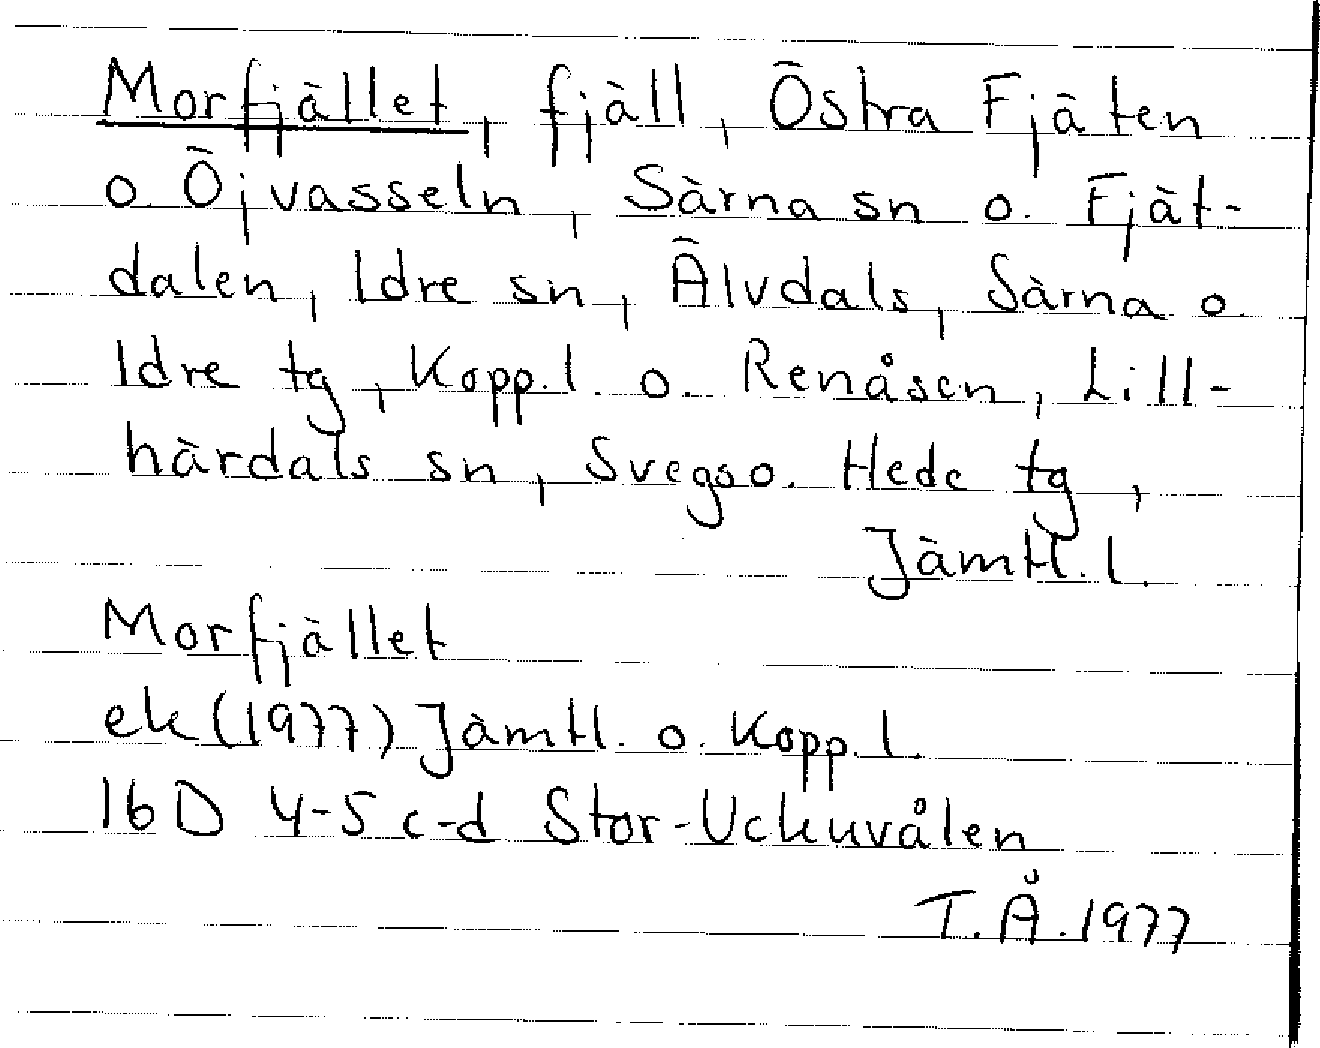 Morfjället, fjäll, Östra Fjäten
o. Öjvasseln, Särna sn o. Fjät-
dalen, Idre sn, Älvdals, Särna o.
Idre tg, Kopp.l. o. Renåsen, Lill-
härdals sn, Svegs o. Hede tg,
Jämtl.l.
Morfjället
ek (1977) Jämtl. o. Kopp.l.
16D 4-5 c-d Stor-Uckuvålen
T.Å. 1977